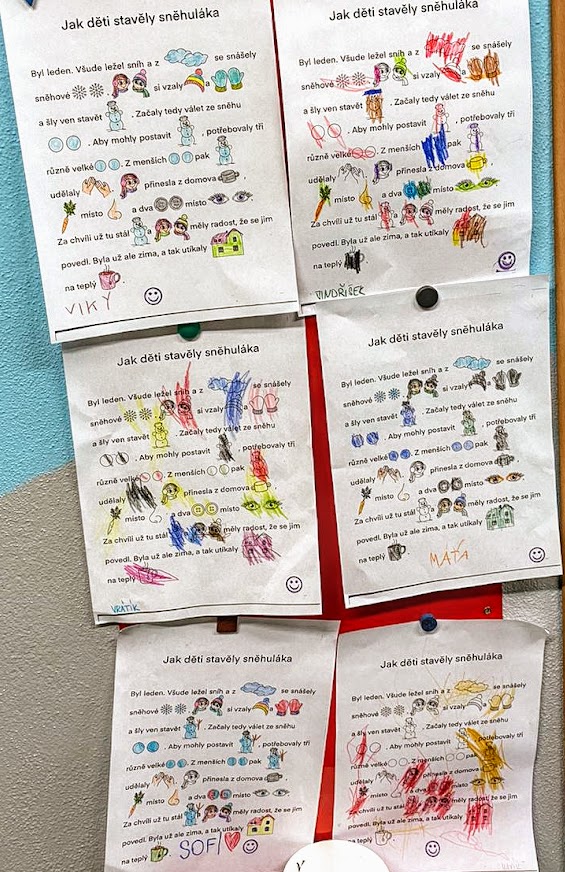 Jak děti stavěly sněhuláka
Byl leden. Všude ležel sníh a z se snášely
sněhové si vzaly a
a šly ven stavět . Začaly tedy válet ze sněhu
. Aby mohly postavit , potřebovaly tři
různě velké . Z menších pak
udělaly přinesla z domova
místo a dva místo
Za chvíli už tu stál měly radost, že se jim
povedl. Byla už ale zima, a tak utíkaly
na teplý
VIKY
Jak děti stavěly sněhuláka
Byl leden. Všude ležel sníh a z se snášely
sněhové si vzaly a
a šly ven stavět . Začaly tedy válet ze sněhu
. Aby mohly postavit , potřebovaly tři
různě velké . Z menších pak
udělaly přinesla z domova
místo a dva místo
Za chvíli už tu stál měly radost, že se jim
povedl. Byla už ale zima, a tak utíkaly
na teplý
JINDŘÍŠEK
Jak děti stavěly sněhuláka
Byl leden. Všude ležel sníh a z se snášely
sněhové si vzaly a
a šly ven stavět . Začaly tedy válet ze sněhu
. Aby mohly postavit , potřebovaly tři
různě velké . Z menších pak
udělaly přinesla z domova
místo a dva místo
Za chvíli už tu stál měly radost, že se jim
povedl. Byla už ale zima, a tak utíkaly
na teplý
VRÁTÍK
Jak děti stavěly sněhuláka
Byl leden. Všude ležel sníh a z se snášely
sněhové si vzaly a
a šly ven stavět . Začaly tedy válet ze sněhu
. Aby mohly postavit , potřebovaly tři
různě velké . Z menších pak
udělaly přinesla z domova
místo a dva místo
Za chvíli už tu stál měly radost, že se jim
povedl. Byla už ale zima, a tak utíkaly
na teplý
MAŤA
Jak děti stavěly sněhuláka
Byl leden. Všude ležel sníh a z se snášely
sněhové si vzaly a
a šly ven stavět . Začaly tedy válet ze sněhu
. Aby mohly postavit , potřebovaly tři
různě velké . Z menších pak
udělaly přinesla z domova
místo a dva místo
Za chvíli už tu stál měly radost, že se jim
povedl. Byla už ale zima, a tak utíkaly
na teplý
SOFI
Jak děti stavěly sněhuláka
Byl leden. Všude ležel sníh a z se snášely
sněhové si vzaly a
a šly ven stavět . Začaly tedy válet ze sněhu
. Aby mohly postavit , potřebovaly tři
různě velké . Z menších pak
udělaly přinesla z domova
místo a dva místo
Za chvíli už tu stál měly radost, že se jim
povedl. Byla už ale zima, a tak utíkaly
na teplý